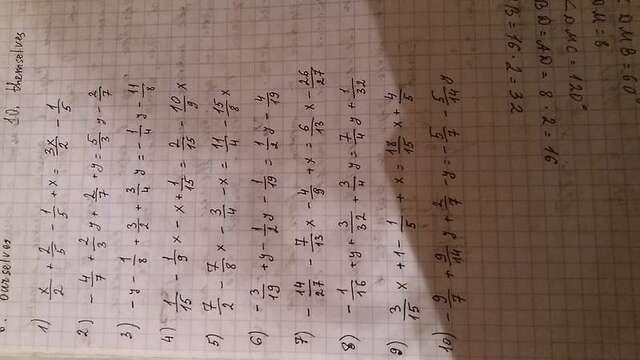 6. ourselves
10. themselves
1) x/2 + 2/5 - 1/5 + x = 3x/2 - 1/5
2) - 4/7 + 2/3 y + 2/7 + y = 5/3 y - 2/7
3) - y - 1/8 + 3/2 + 3/4 y = - 1/4 y - 11/8
4) 1/15 - 1/9 x - x + 1/15 = 2/15 - 10/9 x
5) 7/2 - 7/8 x - 3/4 - x = 11/4 - 15/8 x
6) - 3/19 + y - 1/2 y - 1/19 = 1/2 y - 4/19
7) - 14/27 - 7/13 x - 4/9 + x = 6/13 x - 26/27
8) - 1/16 + y + 3/32 + 3/4 y = 7/4 y + 1/32
9) 3/15 x + 1 - 1/5 + x = 18/15 x + 4/5
10) - 9/7 + 9/14 y + 2/7 - y = - 5/7 - 5/14 y
B = 16 · 2 = 32
BD = AD = 8 · 2 = 16
<DMC = 120°
DM = 8
DMB = 60